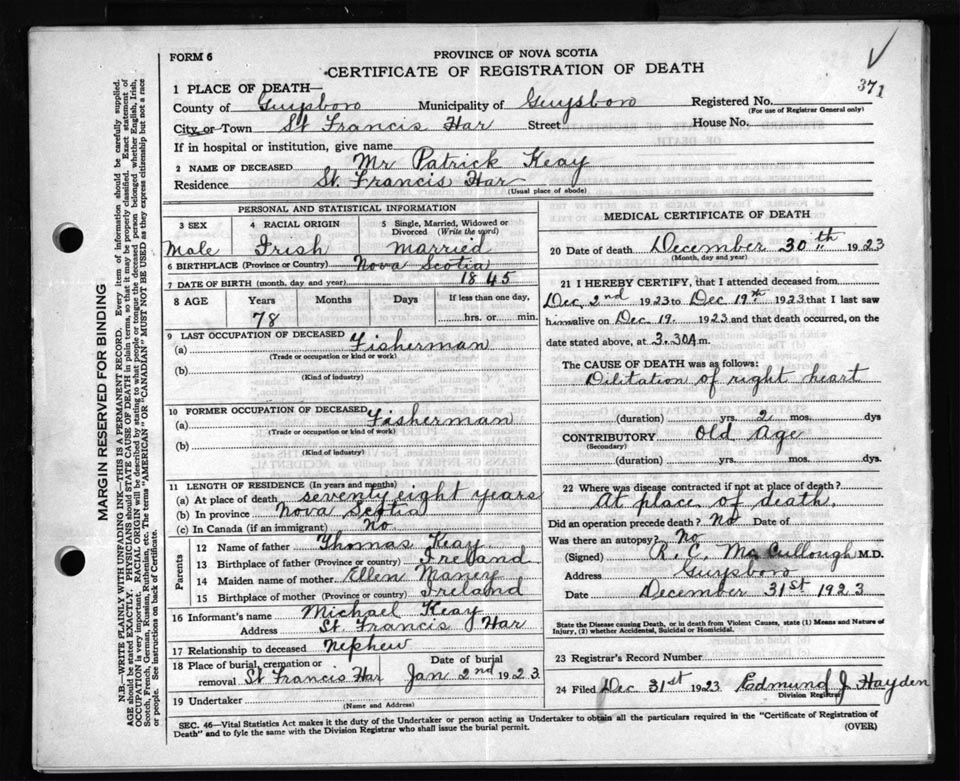 FORM 6
PROVINCE OF NOVA SCOTIA
CERTIFICATE OF REGISTRATION OF DEATH
371
1 PLACE OF DEATH—
County of Guysboro Municipality of Guysboro Registered No.
(For use of Registrar General only)
City or Town St Francis Har Street House No.
If in hospital or institution, give name
2 NAME OF DECEASED Mr Patrick Keay
Residence St. Francis Har
(Usual place of abode)
PERSONAL AND STATISTICAL INFORMATION
3 SEX 4 RACIAL ORIGIN 5 Single, Married, Widowed or Divorced (Write the word)
Male Irish married
6 BIRTHPLACE (Province or Country) Nova Scotia
7 DATE OF BIRTH (month, day and year) 1845
8 AGE Years Months Days If less than one day,
78 hrs. or min.
9 LAST OCCUPATION OF DECEASED
(a) Fisherman
(Trade or occupation or kind or work)
(b)
(Kind of industry)
10 FORMER OCCUPATION OF DECEASED
(a) Fisherman
(Trade or occupation or kind of work)
(b)
(Kind of industry)
11 LENGTH OF RESIDENCE (In years and months)
(a) At place of death seventy eight years
(b) In province Nova Scotia
(c) In Canada (if an immigrant) No
Parents
12 Name of father Thomas Keay
13 Birthplace of father (Province or country) Ireland
14 Maiden name of mother Ellen Maney
15 Birthplace of mother (Province or country) Ireland
16 Informant's name Michael Keay
Address St. Francis Har
17 Relationship to deceased Nephew
18 Place of burial, cremation or Date of burial
removal St Francis Har Jan 2nd 1923
19 Undertaker
(Name and Address)
MEDICAL CERTIFICATE OF DEATH
20 Date of death December 30th 1923
(Month, day and year)
21 I HEREBY CERTIFY, that I attended deceased from
Dec 2nd 1923 to Dec 19th 1923 that I last saw
him alive on Dec 19. 1923 and that death occurred, on the
date stated above, at 3.30 A.m.
The CAUSE OF DEATH was as follows:
Dilitation of right heart
(duration) yrs. 2 mos. dys
CONTRIBUTORY Old Age
(Secondary)
(duration) yrs. mos. dys.
22 Where was disease contracted if not at place of death?
At place of death.
Did an operation precede death? No Date of
Was there an autopsy? No
(Signed) R. C. McCullough M.D.
Address Guysboro
Date December 31st 1923
State the Disease causing Death, or in death from Violent Causes, state (1) Means and Nature of Injury, (2) whether Accidental, Suicidal or Homicidal.
23 Registrar's Record Number
24 Filed Dec 31st 1923 Edmund J Hayden
Division Registrar
SEC. 46—Vital Statistics Act makes it the duty of the Undertaker or person acting as Undertaker to obtain all the particulars required in the "Certificate of Registration of
Death" and to fyle the same with the Division Registrar who shall issue the burial permit.
(OVER)
MARGIN RESERVED FOR BINDING
N.B.—WRITE PLAINLY WITH UNFADING INK—THIS IS A PERMANENT RECORD. Every item of information should be carefully supplied.
AGE should be stated EXACTLY. PHYSICIANS should STATE CAUSE OF DEATH in plain terms, so that it may be properly classified. Exact statement of
OCCUPATION is very important. RACIAL ORIGIN will be described by stating to what people or tongue the deceased person belonged whether English, Irish,
Scotch, French, German, Russian, Ruthenian, etc. The terms "AMERICAN" OR "CANADIAN" MUST NOT BE USED as they express citizenship but not a race
or people. See instructions on back of Certificate.